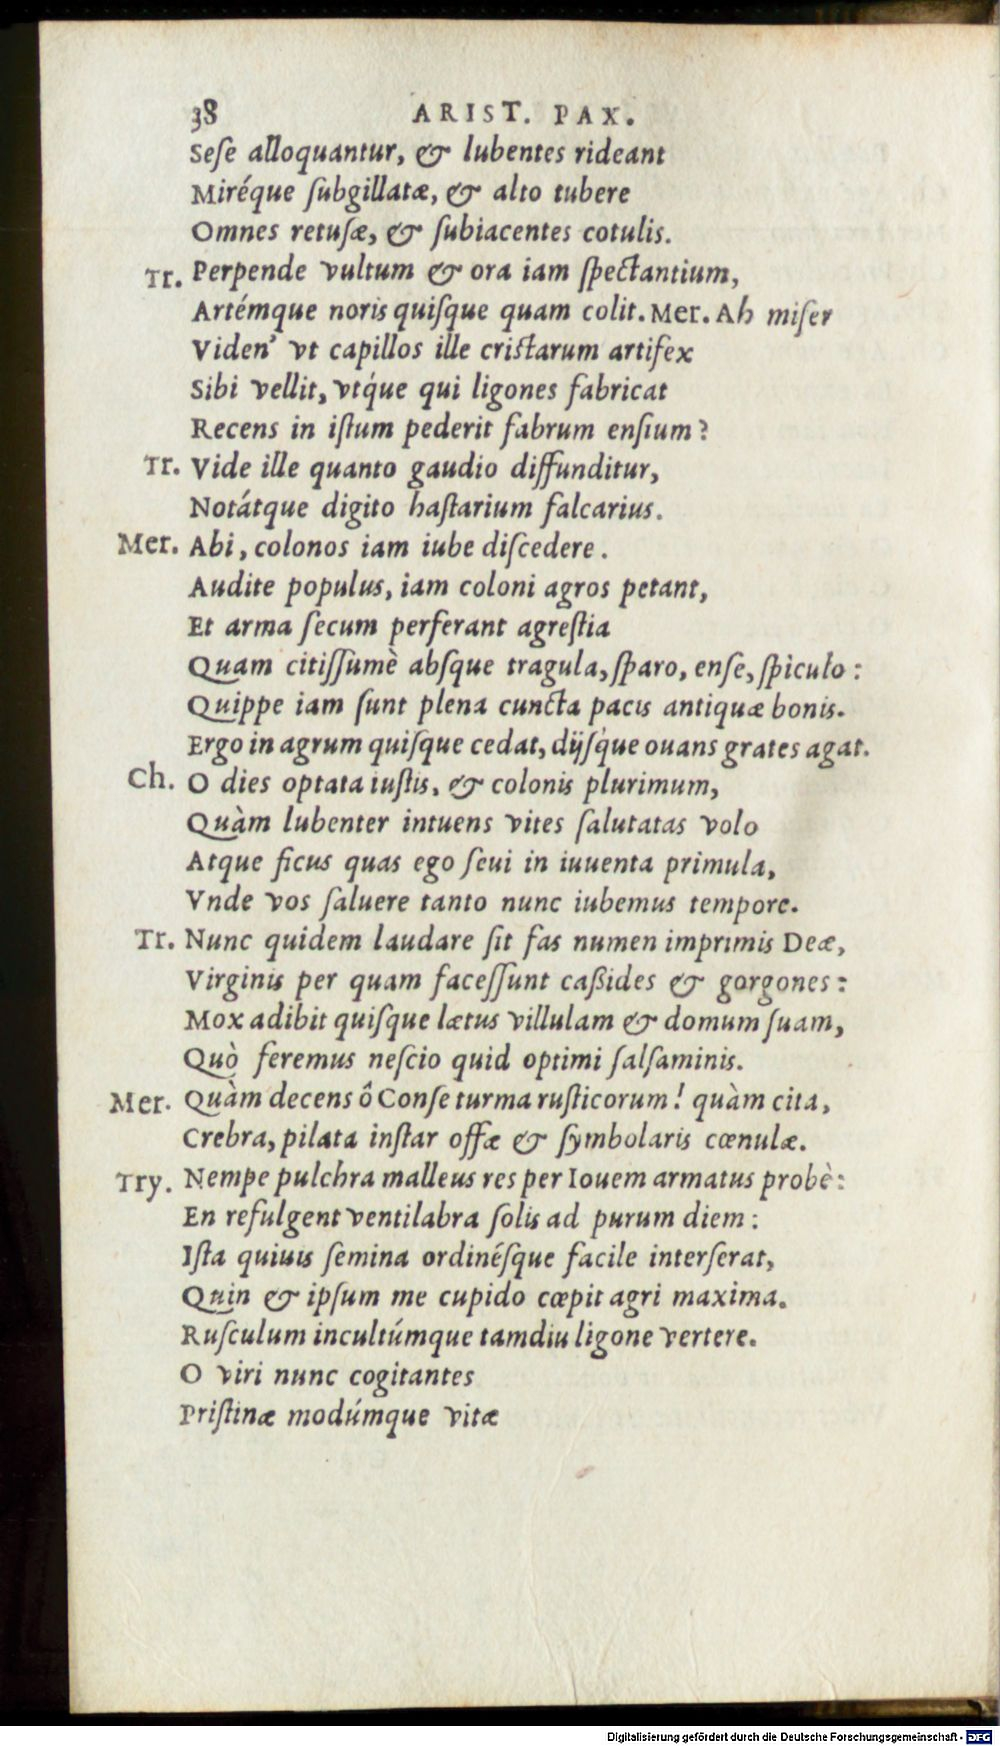 38 ARIST. PAX.
Sese alloquantur, & lubentes rideant
Miréque subgillatæ, & alto tubere
Omnes retusæ, & subiacentes cotulis.
Tr. Perpende vultum & ora iam spectantium,
Artémque noris quisque quam colit. Mer. Ah miser
Viden' vt capillos ille cristarum artifex
Sibi vellit, vtq́ue qui ligones fabricat
Recens in istum pederit fabrum ensium?
Tr. Vide ille quanto gaudio diffunditur,
Notátque digito hastarium falcarius.
Mer. Abi, colonos iam iube discedere.
Audite populus, iam coloni agros petant,
Et arma secum perferant agrestia
Quam citissumè absque tragula, sparo, ense, spiculo:
Quippe iam sunt plena cuncta pacis antiquæ bonis.
Ergo in agrum quisque cedat, dijsq́ue ouans grates agat.
Ch. O dies optata iustis, & colonis plurimum,
Quàm lubenter intuens vites salutatas volo
Atque ficus quas ego seui in iuuenta primula,
Vnde vos saluere tanto nunc iubemus tempore.
Tr. Nunc quidem laudare sit fas numen imprimis Deæ,
Virginis per quam facessunt cassides & gorgones:
Mox adibit quisque lætus villulam & domum suam,
Quò feremus nescio quid optimi salsaminis.
Mer. Quàm decens ô Conse turma rusticorum! quàm cita,
Crebra, pilata instar offæ & symbolaris cœnulæ.
Try. Nempe pulchra malleus res per Iouem armatus probè:
En refulgent ventilabra solis ad purum diem:
Ista quiuis semina ordinésque facile interserat,
Quin & ipsum me cupido cœpit agri maxima.
Rusculum incultúmque tamdiu ligone vertere.
O viri nunc cogitantes
Pristinæ modúmque vitæ
Digitalisierung gefördert durch die Deutsche Forschungsgemeinschaft - DFG